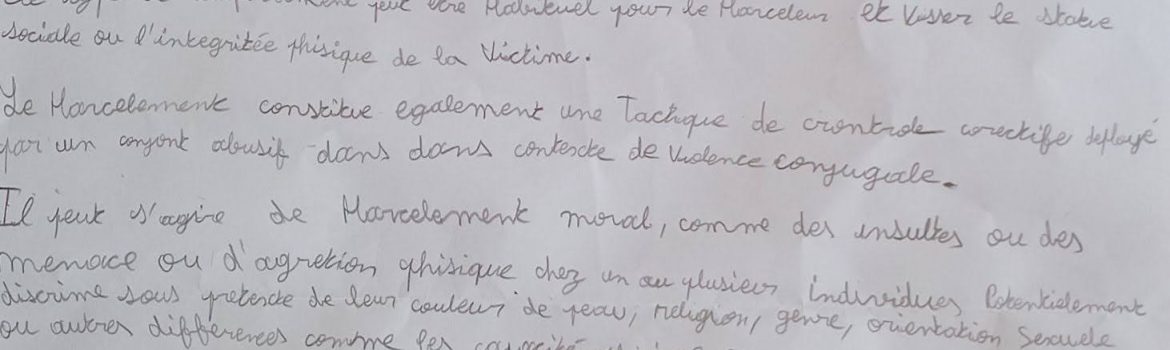 peut être Habituel pour le Harceleur et Visser le statue
sociale ou l'integritée phisique de la Victime.
Le Harcelement constitue egalement une Tachque de crontrole corectife deployé
par un conjont abusif dans dans contexcte de Violence conjugale.
Il peut s'agire de Harcelement moral, comme des insultes ou des
menace ou d'agretion phisique chez un ou plusieur individues Potentielement
discrime sous pretexcte de leur couleur de peau, religion, genre, orientation Sexuele
ou autres differences comme les